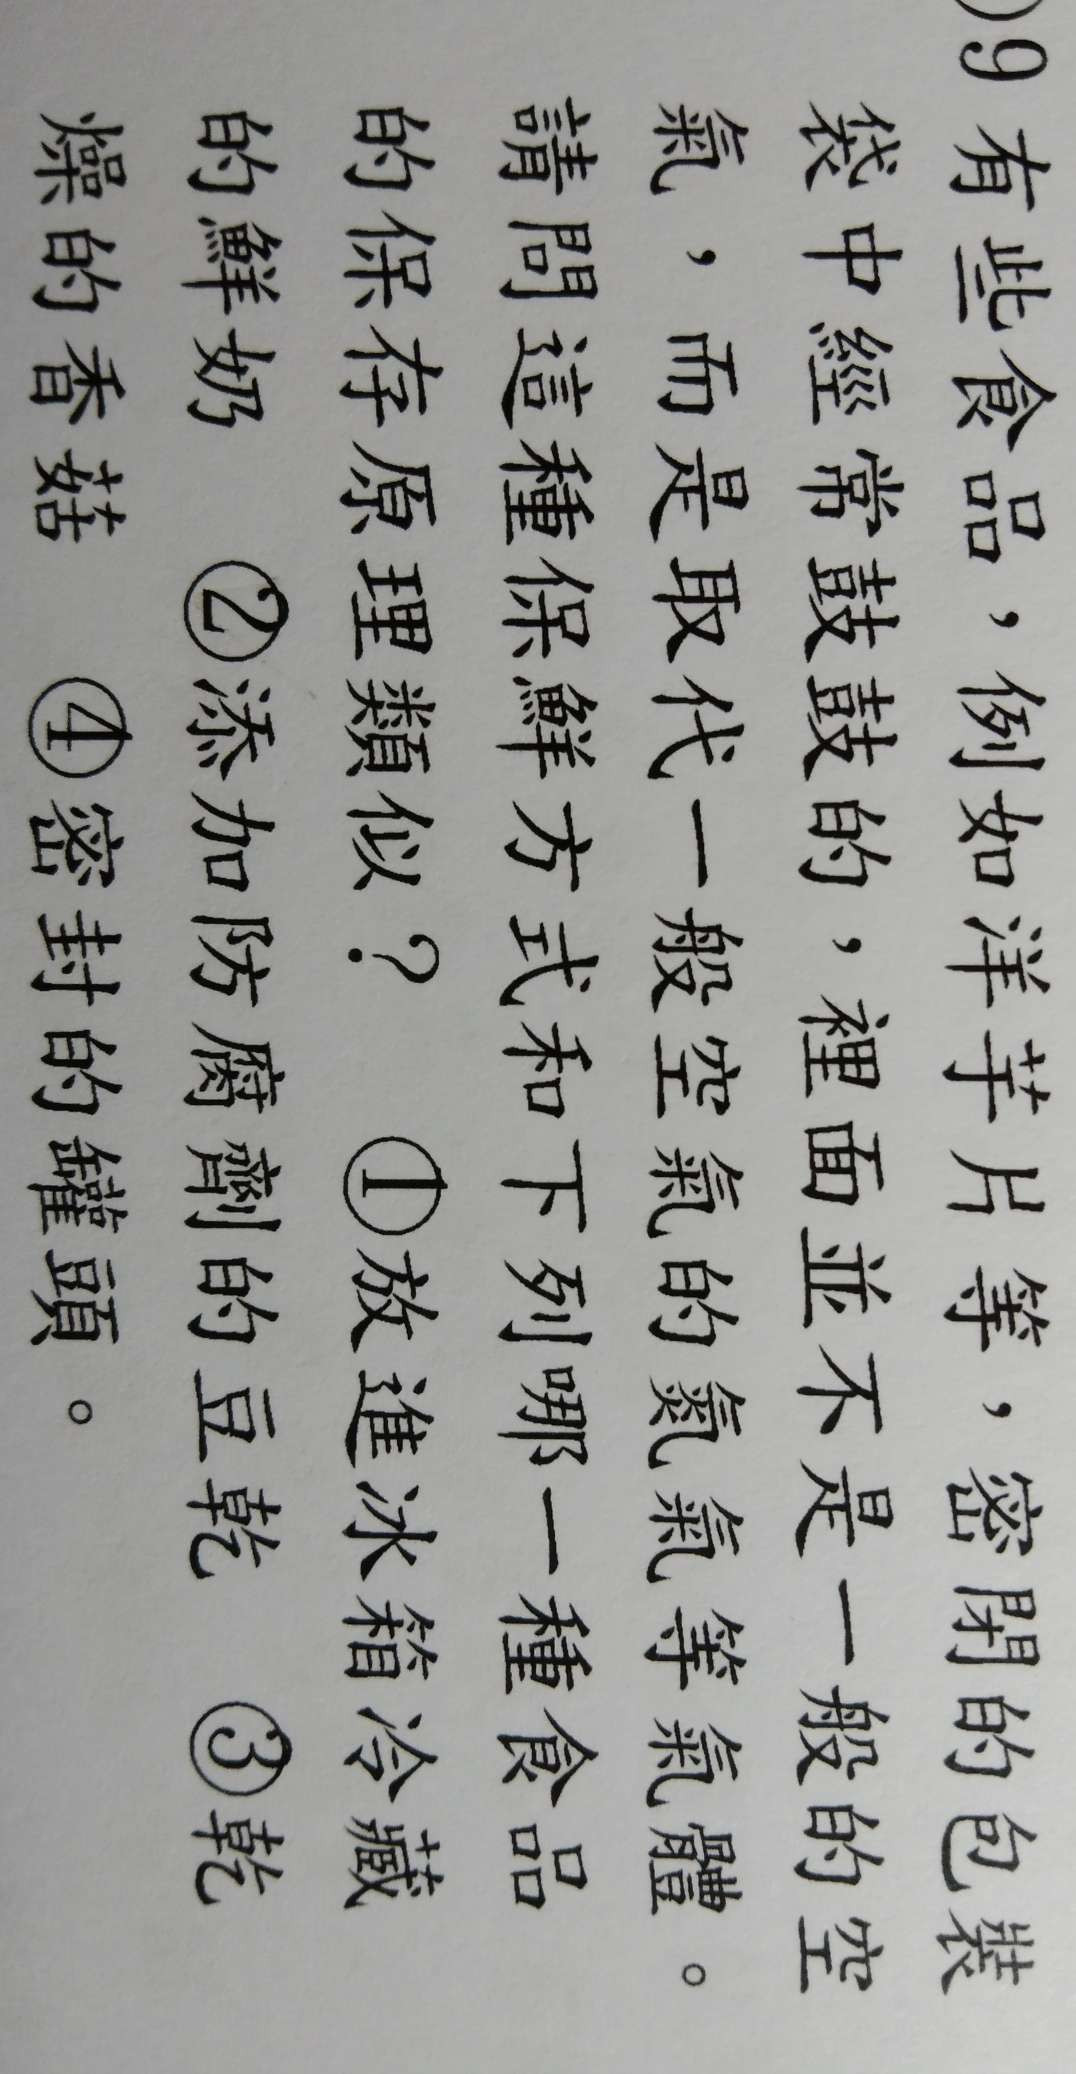 )9 有些食品，例如洋芋片等，密閉的包裝
袋中經常鼓鼓的，裡面並不是一般的空
氣，而是取代一般空氣的氮氣等氣體。
請問這種保鮮方式和下列哪一種食品
的保存原理類似？ ①放進冰箱冷藏
的鮮奶 ②添加防腐劑的豆乾 ③乾
燥的香菇 ④密封的罐頭。